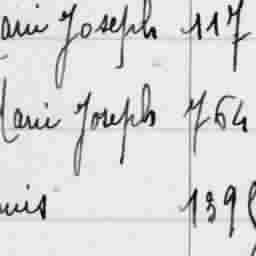 arie Joseph 117
Marie Joseph 764
uis 139